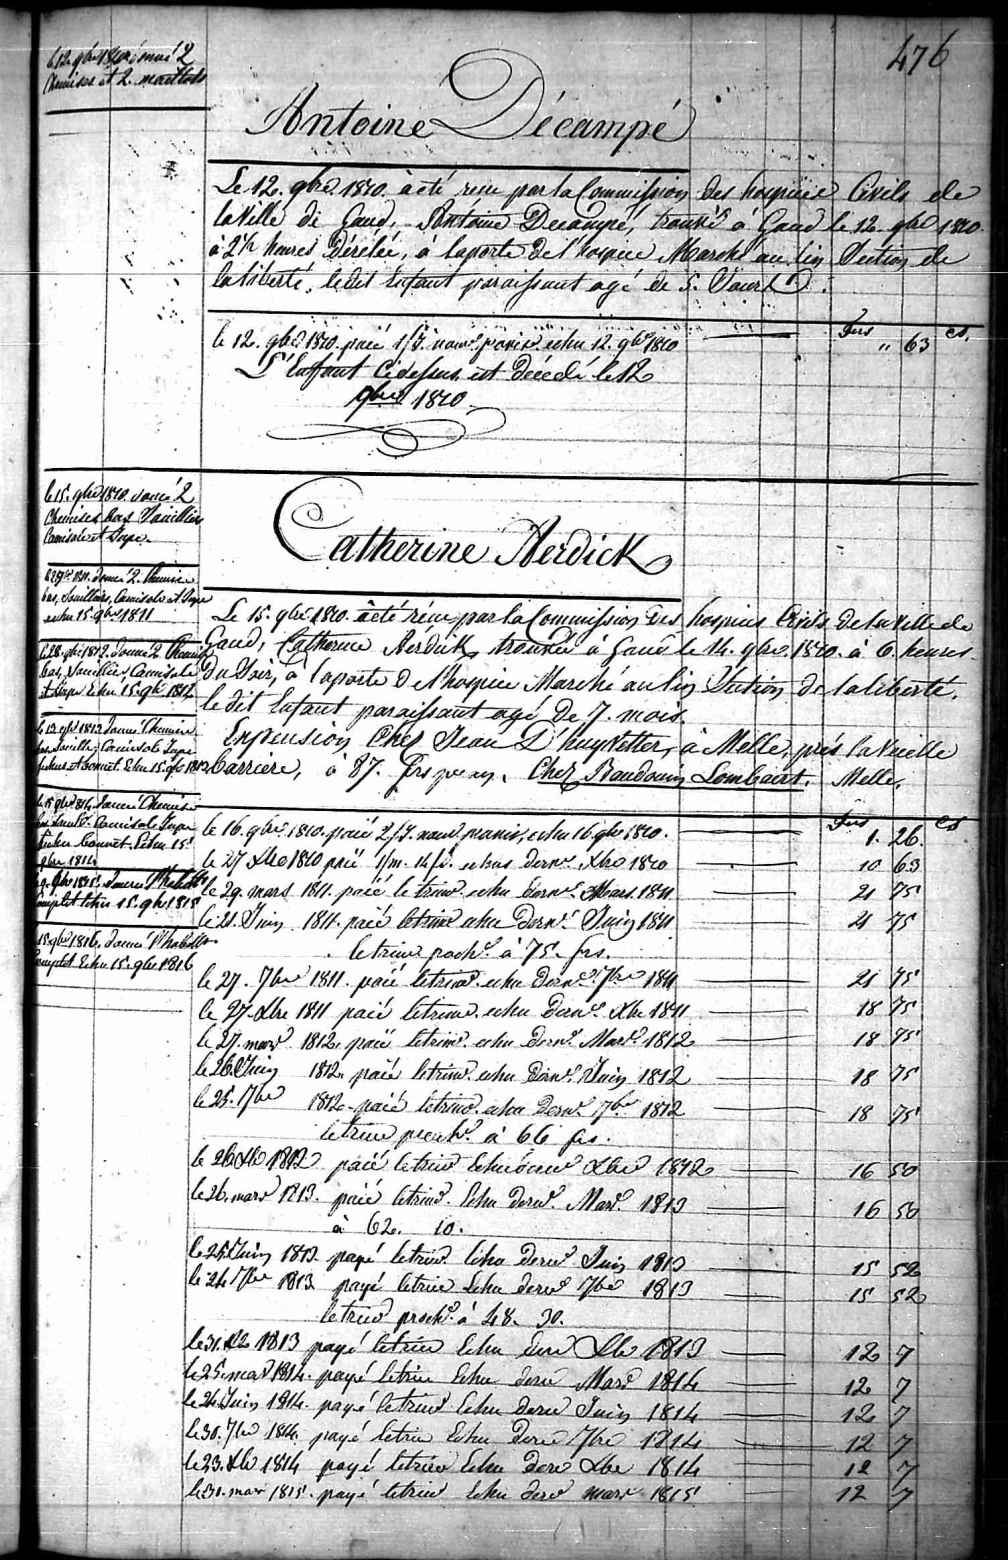 476
le 12. 9bre 1810 donné 2
Chemises et 2. maillots
Antoine Décampé
Le 12. 9bre 1810. à été reçu par la Commission des hospices Civils de
la Ville de Gand, Antoine Decampé, trouvé à Gand le 12. 9bre 1810.
à 2 1/2 heures Dérélée, à la porte de l'hospice Marché au lin Section de
la liberté, le dit Enfant paraissant agé de 5. Jours.
frs cs.
le 12. 9bre 1810. paié 1/J. nour. echu 12. 9bre 1810 " 63
L'Enfant Cidessus est Décédé le 12
9bre 1810.
le 15. 9bre 1810. donné 2
Chemises bas Souilliers
Camisole et Jupe.
donné 2. Chemise
bas, Souilliers, Camisole et Jupe
echu 15. 9bre 1811
le 28. 9bre 1812. donné 2 Chemises
bas, Souilliers, Camisole
et Jupe Echu 15. 9bre 1812
1813 donné Chemise
bas Souilliers Camisole Jupe
et bonnet. Echu 15. 9bre 1813
le 15 9bre 1814. donné Chemise
Camisole Jupe
bonnet. Echu 15
9bre 1814
9bre 1815. donné l'habill.
complet Echu 15. 9bre 1815
15. 9bre 1816. donné l'habill.
complet Echu 15. 9bre 1816
Catherine Aerdick
Le 15. 9bre 1810. à été réçu par la Commission des hospices Civils de la Ville de
Gand, Catherine Aerdick, trouvée à Gand le 14. 9bre. 1810. à 6. heures
du Soir, à la porte de l'hospice Marché au lin Section de la liberté.
le dit Enfant paraissant agé de 7. mois.
En pension Chez Jean D'huyvetter, à Melle, près la Vieille
barrière, à 87. frs par an. Chez Baudouin Lombaert. Melle.
frs cs
le 16. 9bre 1810. paié 2/J. nour. echu 16 9bre 1810. 1. 26.
le 27 Xbre 1810 paié 1/m. 14/J. echus dernr. Xbre 1810 10 63
le 29. mars 1811. paié le trim. echu dernr. Mars 1811 21 75
le 21. Juin 1811. paié le trim. echu dernr. Juin 1811 21 75
le trim proch. à 75. frs.
le 27. 7bre 1811. paié le trim. echu dernr. 7bre 1811 21 75
le 27. Xbre 1811 paié le trim. echu dernr. Xbre 1811 18 75
le 27. mars 1812. paié le trim. echu dernr. Mars. 1812 18 75
le 26 Juin 1812. paié le trim. echu dernr. Juin 1812 18 75
le 25. 7bre 1812. paié le trim. echu dernr. 7bre 1812 18 75
le trim proch. à 66 frs.
le 26 Xbre 1812 paié le trim Echu dernr Xbre 1812 16 50
le 26. mars 1813. paié le trim. Echu dernr. Mars. 1813 16 50
à 62. 10.
le 25 Juin 1813 payé le trim. Echu dernr Juin 1813 15 52
le 24 7bre 1813 payé le trim Echu dernr 7bre 1813 15 52
le trim proch. à 48. 30.
le 31. Xbre 1813 payé le trim Echu dernr Xbre 1813 12 7
le 25 mars 1814. payé le trim Echu dernr Mars 1814 12 7
le 24 Juin 1814. payé le trim Echu dernr Juin 1814 12 7
le 30. 7bre 1814. payé le trim Echu dernr 7bre 1814 12 7
le 23. Xbre 1814 payé le trim Echu dernr Xbre 1814 12 7
le 31. mars 1815. payé le trim Echu dernr mars 1815 12 7